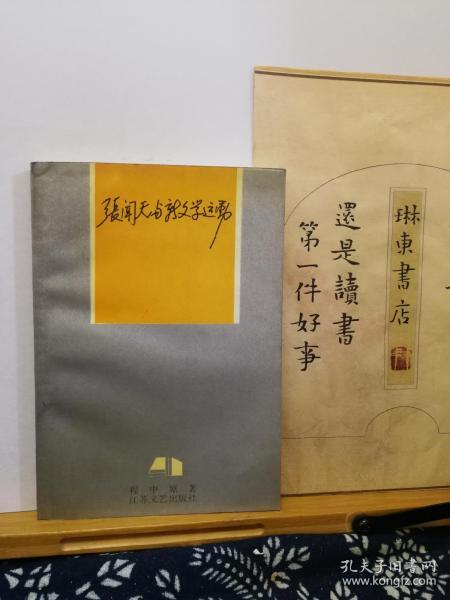 張聞天与新文学运動
程中原著
江苏文艺出版社
琳東書店
還是讀書
第一件好事
孔夫子旧书网
www.kongfz.com